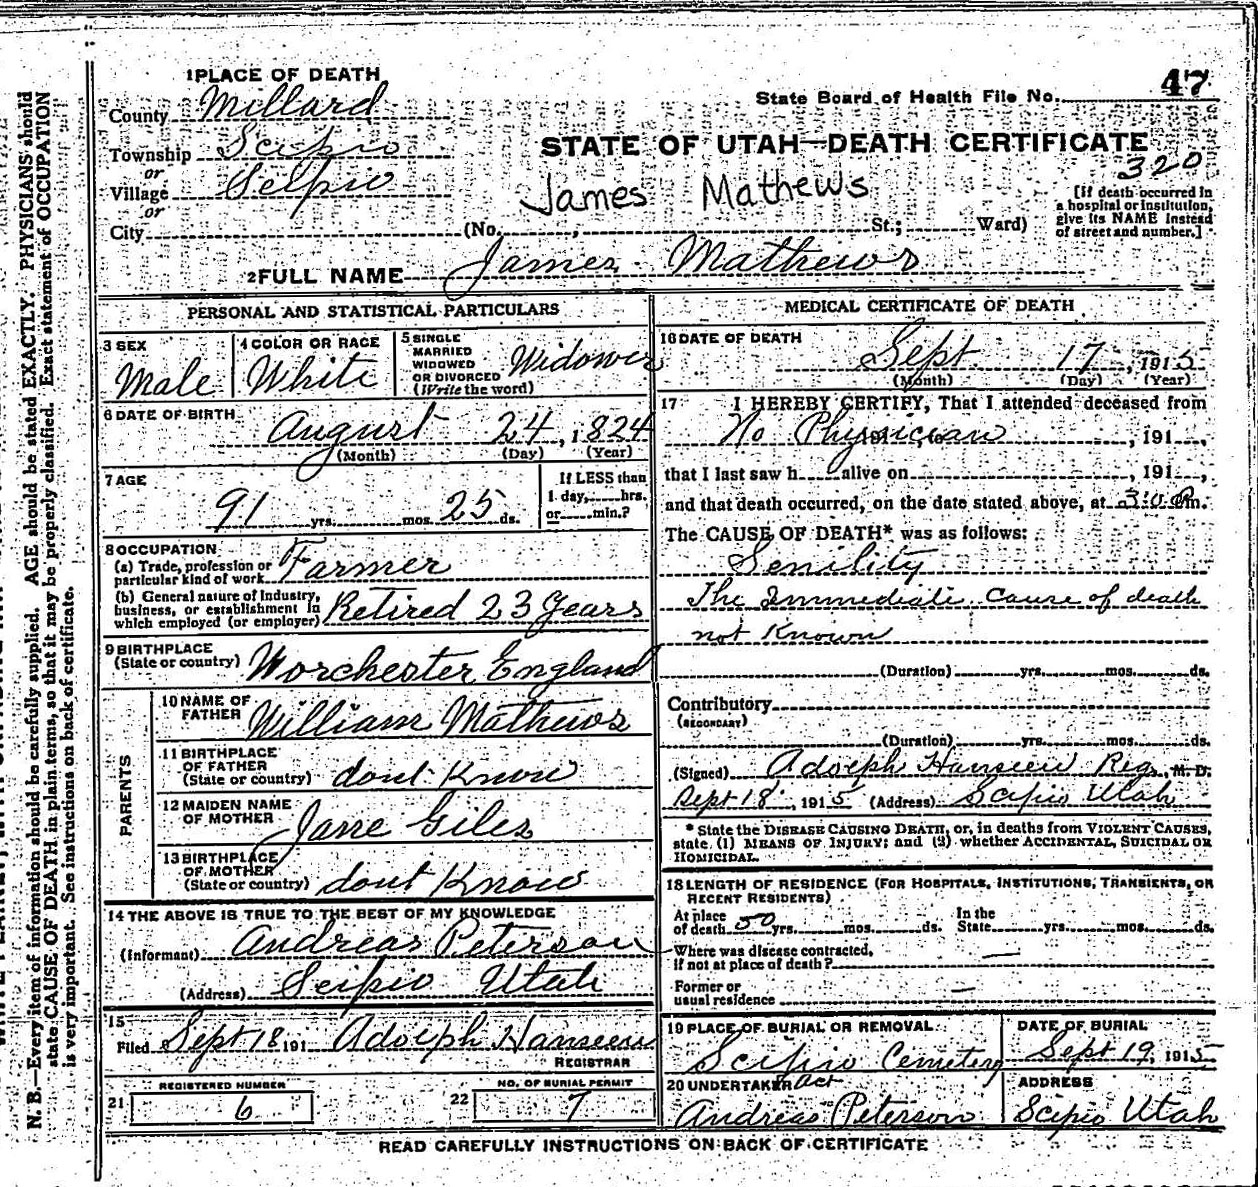 1 PLACE OF DEATH
47
State Board of Health File No.
County Millard
STATE OF UTAH—DEATH CERTIFICATE
Township Scipio
320
or
Village Scipio
James Mathews
[If death occurred in a hospital or institution, give its NAME instead of street and number.]
or
City (No. , St.; Ward)
2 FULL NAME James Mathews
PERSONAL AND STATISTICAL PARTICULARS
3 SEX
Male
4 COLOR OR RACE
White
5 SINGLE
MARRIED
WIDOWED
OR DIVORCED
(Write the word)
Widower
6 DATE OF BIRTH
August 24, 1824
(Month) (Day) (Year)
7 AGE
91 yrs. mos. 25 ds.
If LESS than
1 day, hrs.
or min.?
8 OCCUPATION
(a) Trade, profession or
particular kind of work Farmer
(b) General nature of industry,
business, or establishment in
which employed (or employer) Retired 23 Years
9 BIRTHPLACE
(State or country) Worchester England
PARENTS
10 NAME OF
FATHER William Mathews
11 BIRTHPLACE
OF FATHER
(State or country) dont Know
12 MAIDEN NAME
OF MOTHER Jane Giles
13 BIRTHPLACE
OF MOTHER
(State or country) dont Know
14 THE ABOVE IS TRUE TO THE BEST OF MY KNOWLEDGE
(Informant) Andreas Peterson
(Address) Scipio Utah
15
Filed Sept 18 191 Adolph Hanseen
REGISTRAR
REGISTERED NUMBER
21 6
NO. OF BURIAL PERMIT
22 7
MEDICAL CERTIFICATE OF DEATH
16 DATE OF DEATH
Sept. 17, 1915
(Month) (Day) (Year)
17 I HEREBY CERTIFY, That I attended deceased from
No Physician, 191 ,
that I last saw h alive on , 191 ,
and that death occurred, on the date stated above, at m.
The CAUSE OF DEATH* was as follows:
Senility
The Immediate Cause of death
not Known
(Duration) yrs. mos. ds.
Contributory
(SECONDARY)
(Duration) yrs. mos. ds.
(Signed) Adolph Hanseen Reg. M. D.
Sept 18, 1915 (Address) Scipio Utah
* State the DISEASE CAUSING DEATH, or, in deaths from VIOLENT CAUSES,
state (1) MEANS OF INJURY; and (2) whether ACCIDENTAL, SUICIDAL OR
HOMICIDAL.
18 LENGTH OF RESIDENCE (FOR HOSPITALS, INSTITUTIONS, TRANSIENTS, OR
RECENT RESIDENTS)
At place
of death 50 yrs. mos. ds.
In the
State yrs. mos. ds.
Where was disease contracted,
if not at place of death? —
Former or
usual residence —
19 PLACE OF BURIAL OR REMOVAL
Scipio Cemetery
DATE OF BURIAL
Sept 19, 1915
20 UNDERTAKER Act
Andreas Peterson
ADDRESS
Scipio Utah
READ CAREFULLY INSTRUCTIONS ON BACK OF CERTIFICATE
N. B.—Every item of information should be carefully supplied. AGE should be stated EXACTLY. PHYSICIANS should
state CAUSE OF DEATH in plain terms, so that it may be properly classified. Exact statement of OCCUPATION
is very important. See instructions on back of certificate.